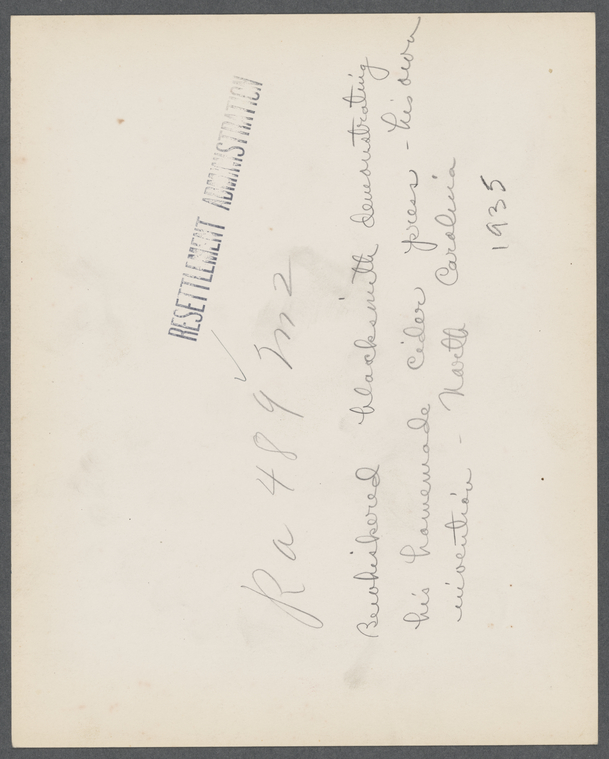 RESETTLEMENT ADMINISTRATION
Ra 489 M2
Bewhiskered blacksmith demonstrating
his homemade cider press - his own
invention - North Carolina
1935